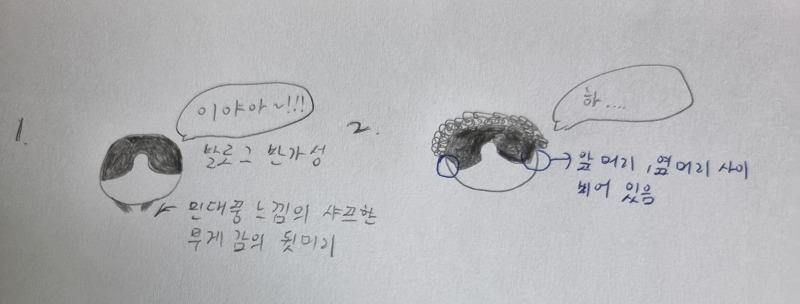 1.
이야아~!!!
발롯그 반가성
민대풍 느낌의 샤프한
무게감의 뒷머리
2.
하....
앞머리, 옆머리 사이
비어 있음